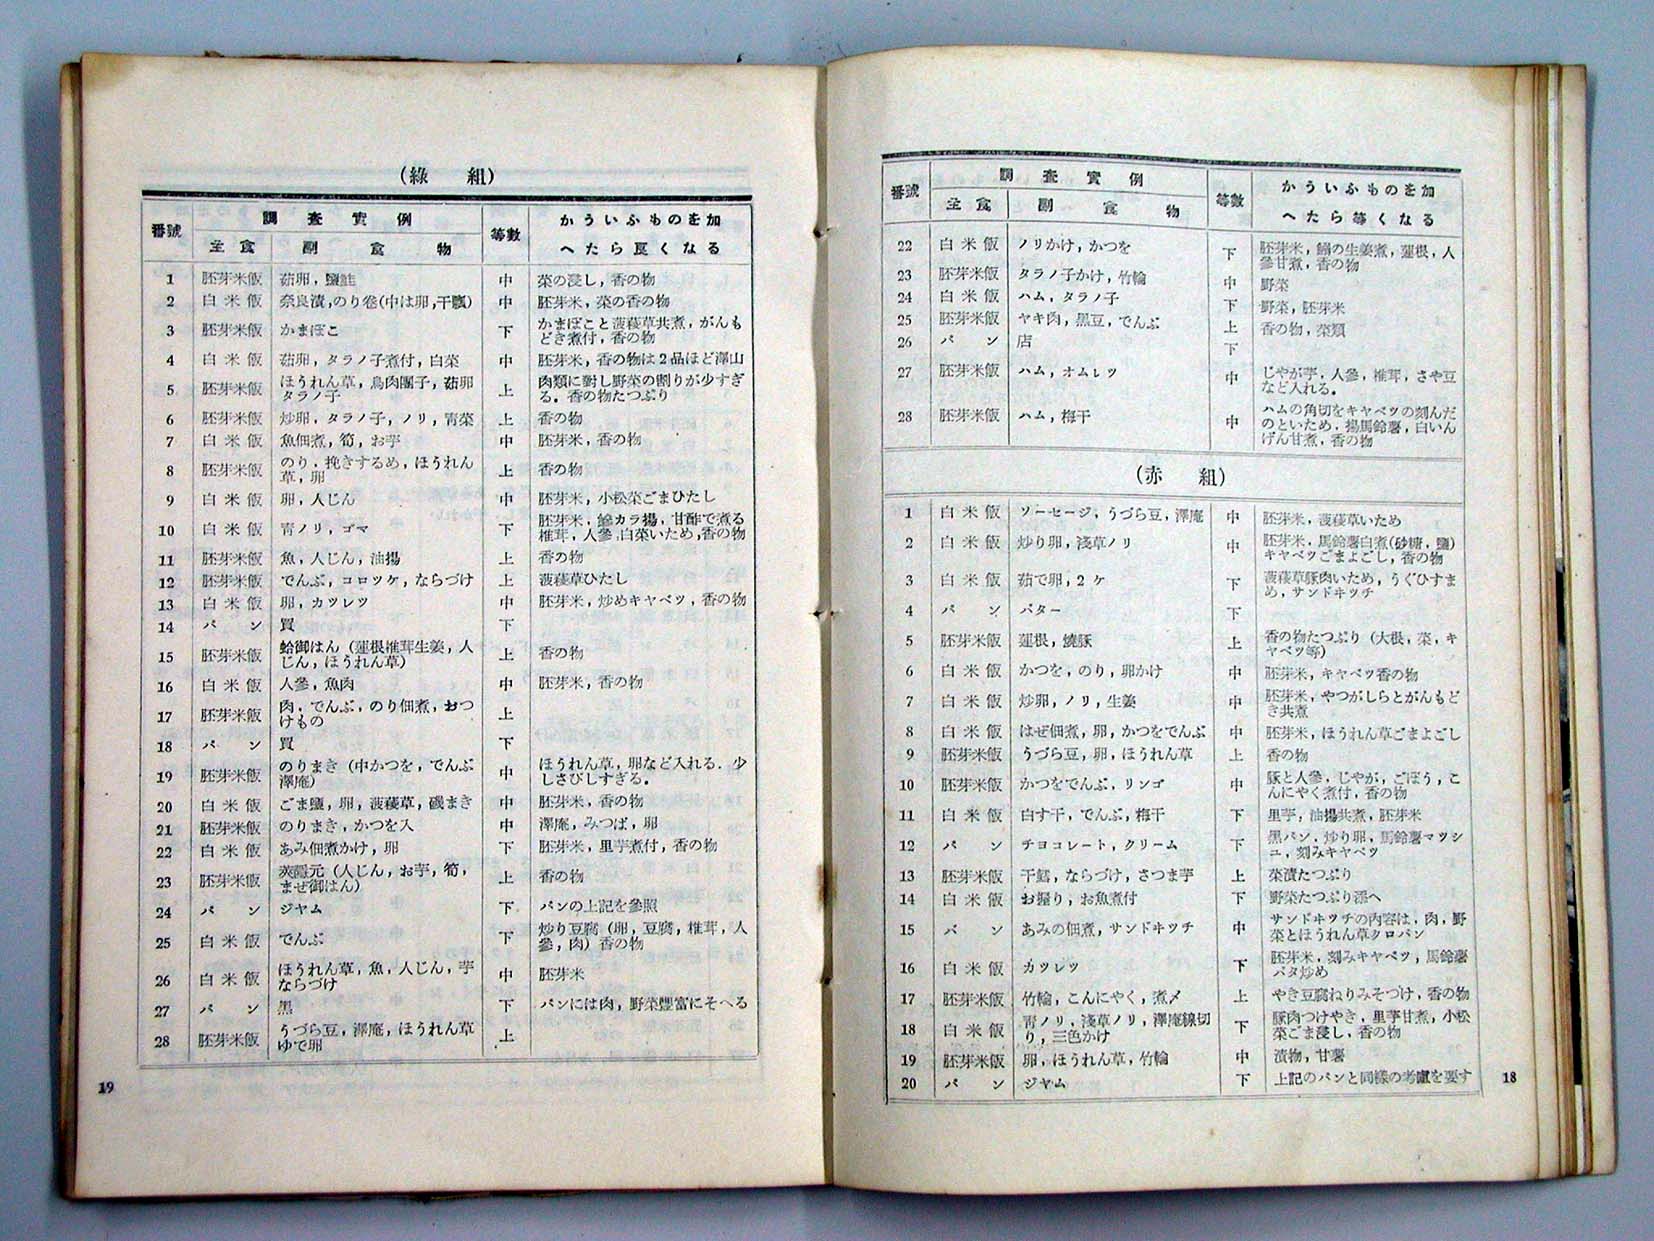 番號 調査實例 等數 かういふものを加
主食 副食物 へたら等くなる
22 白米飯 ノリかけ，かつを 下 胚芽米，鰯の生姜煮，蓮根，人
參甘煮，香の物
23 胚芽米飯 タラノ子かけ，竹輪 中 野菜
24 白米飯 ハム，タラノ子 下 野菜，胚芽米
25 胚芽米飯 ヤキ肉，黒豆，でんぶ 上 香の物，菜類
26 パン 店 下
27 胚芽米飯 ハム，オムレツ 中 じやが芋，人參，椎茸，さや豆
など入れる．
28 胚芽米飯 ハム，梅干 中 ハムの角切をキヤベツの刻んだ
のといため．揚馬鈴薯，白いん
げん甘煮，香の物
（赤組）
1 白米飯 ソーセージ，うづら豆，澤庵 中 胚芽米，菠薐草いため
2 白米飯 炒り卵，淺草ノリ 中 胚芽米．馬鈴薯白煮(砂糖，鹽)
キヤベツごまよごし，香の物
3 白米飯 茹で卵，2ケ 下 菠薐草豚肉いため，うぐひすま
め，サンドキツチ
4 パン バター 下
5 胚芽米飯 蓮根，燒豚 上 香の物たつぷり（大根，菜，キ
ヤベツ等）
6 白米飯 かつを，のり，卵かけ 中 胚芽米，キヤベツ香の物
7 白米飯 炒卵，ノリ，生姜 中 胚芽米，やつがしらとがんもど
き共煮
8 白米飯 はぜ佃煮，卵，かつをでんぶ 中 胚芽米，ほうれん草ごまよごし
9 胚芽米飯 うづら豆，卵，ほうれん草 上 香の物
10 胚芽米飯 かつをでんぶ，リンゴ 中 豚と人參，じやが，ごぼう，こ
んにやく煮付，香の物
11 白米飯 白す干，でんぶ，梅干 下 里芋，油揚共煮，胚芽米
12 パン チヨコレート，クリーム 下 黒パン，炒り卵，馬鈴薯マツシ
ユ，刻みキヤベツ
13 胚芽米飯 干鱈，ならづけ，さつま芋 上 菜漬たつぷり
14 白米飯 お握り，お魚煮付 下 野菜たつぷり添へ
15 パン あみの佃煮，サンドキツチ 中 サンドキツチの内容は，肉，野
菜とほうれん草クロパン
16 白米飯 カツレツ 下 胚芽米，刻みキヤベツ，馬鈴薯
バタ炒め
17 胚芽米飯 竹輪，こんにやく，煮〆 上 やき豆腐ねりみそづけ，香の物
18 白米飯 靑ノリ，淺草ノリ，澤庵線切
り，三色かけ 下 豚肉つけやき，里芋甘煮，小松
菜ごま浸し，香の物
19 胚芽米飯 卵，ほうれん草，竹輪 中 漬物，甘薯
20 パン ジヤム 下 上記のパンと同樣の考慮を要す
18
（綠組）
番號 調査實例 等數 かういふものを加
主食 副食物 へたら良くなる
1 胚芽米飯 茹卵，鹽鮭 中 菜の浸し，香の物
2 白米飯 奈良漬，のり卷(中は卵，干瓢) 中 胚芽米，菜の香の物
3 胚芽米飯 かまぼこ 下 かまぼこと菠薐草共煮，がんも
どき煮付，香の物
4 白米飯 茹卵，タラノ子煮付，白菜 中 胚芽米，香の物は2品ほど澤山
5 胚芽米飯 ほうれん草，鳥肉團子，茹卵
タラノ子 上 肉類に對し野菜の割りが少すぎ
る．香の物たつぷり
6 胚芽米飯 炒卵，タラノ子，ノリ，靑菜 上 香の物
7 白米飯 魚佃煮，筍，お芋 中 胚芽米，香の物
8 胚芽米飯 のり．挽きするめ，ほうれん
草，卵 上 香の物
9 白米飯 卵，人じん 中 胚芽米，小松菜ごまひたし
10 白米飯 靑ノリ，ゴマ 下 胚芽米，鰺カラ揚，甘酢で煮る
椎茸，人參，白菜いため，香の物
11 胚芽米飯 魚，人じん，油揚 上 香の物
12 胚芽米飯 でんぶ，コロツケ，ならづけ 上 菠薐草ひたし
13 白米飯 卵，カツレツ 中 胚芽米，炒めキヤベツ，香の物
14 パン 買 下
15 胚芽米飯 蛤御はん（蓮根椎茸生姜，人
じん，ほうれん草） 上 香の物
16 白米飯 人參，魚肉 中 胚芽米，香の物
17 胚芽米飯 肉，でんぶ，のり佃煮，おつ
けもの 上
18 パン 買 下
19 胚芽米飯 のりまき（中かつを，でんぶ
澤庵） 中 ほうれん草，卵など入れる．少
しさびしすぎる．
20 白米飯 ごま鹽，卵，菠薐草，磯まき 中 胚芽米，香の物
21 胚芽米飯 のりまき，かつを入 中 澤庵，みつば，卵
22 白米飯 あみ佃煮かけ，卵 下 胚芽米，里芋煮付，香の物
23 胚芽米飯 莢隱元（人じん，お芋，筍，
まぜ御はん） 上 香の物
24 パン ジヤム 下 パンの上記を參照
25 白米飯 でんぶ 下 炒り豆腐（卵，豆腐，椎茸，人
參，肉）香の物
26 白米飯 ほうれん草，魚，人じん，芋
ならづけ 中 胚芽米
27 パン 黒 下 パンには肉，野菜豐富にそへる
28 胚芽米飯 うづら豆，澤庵，ほうれん草
ゆで卵 上
19